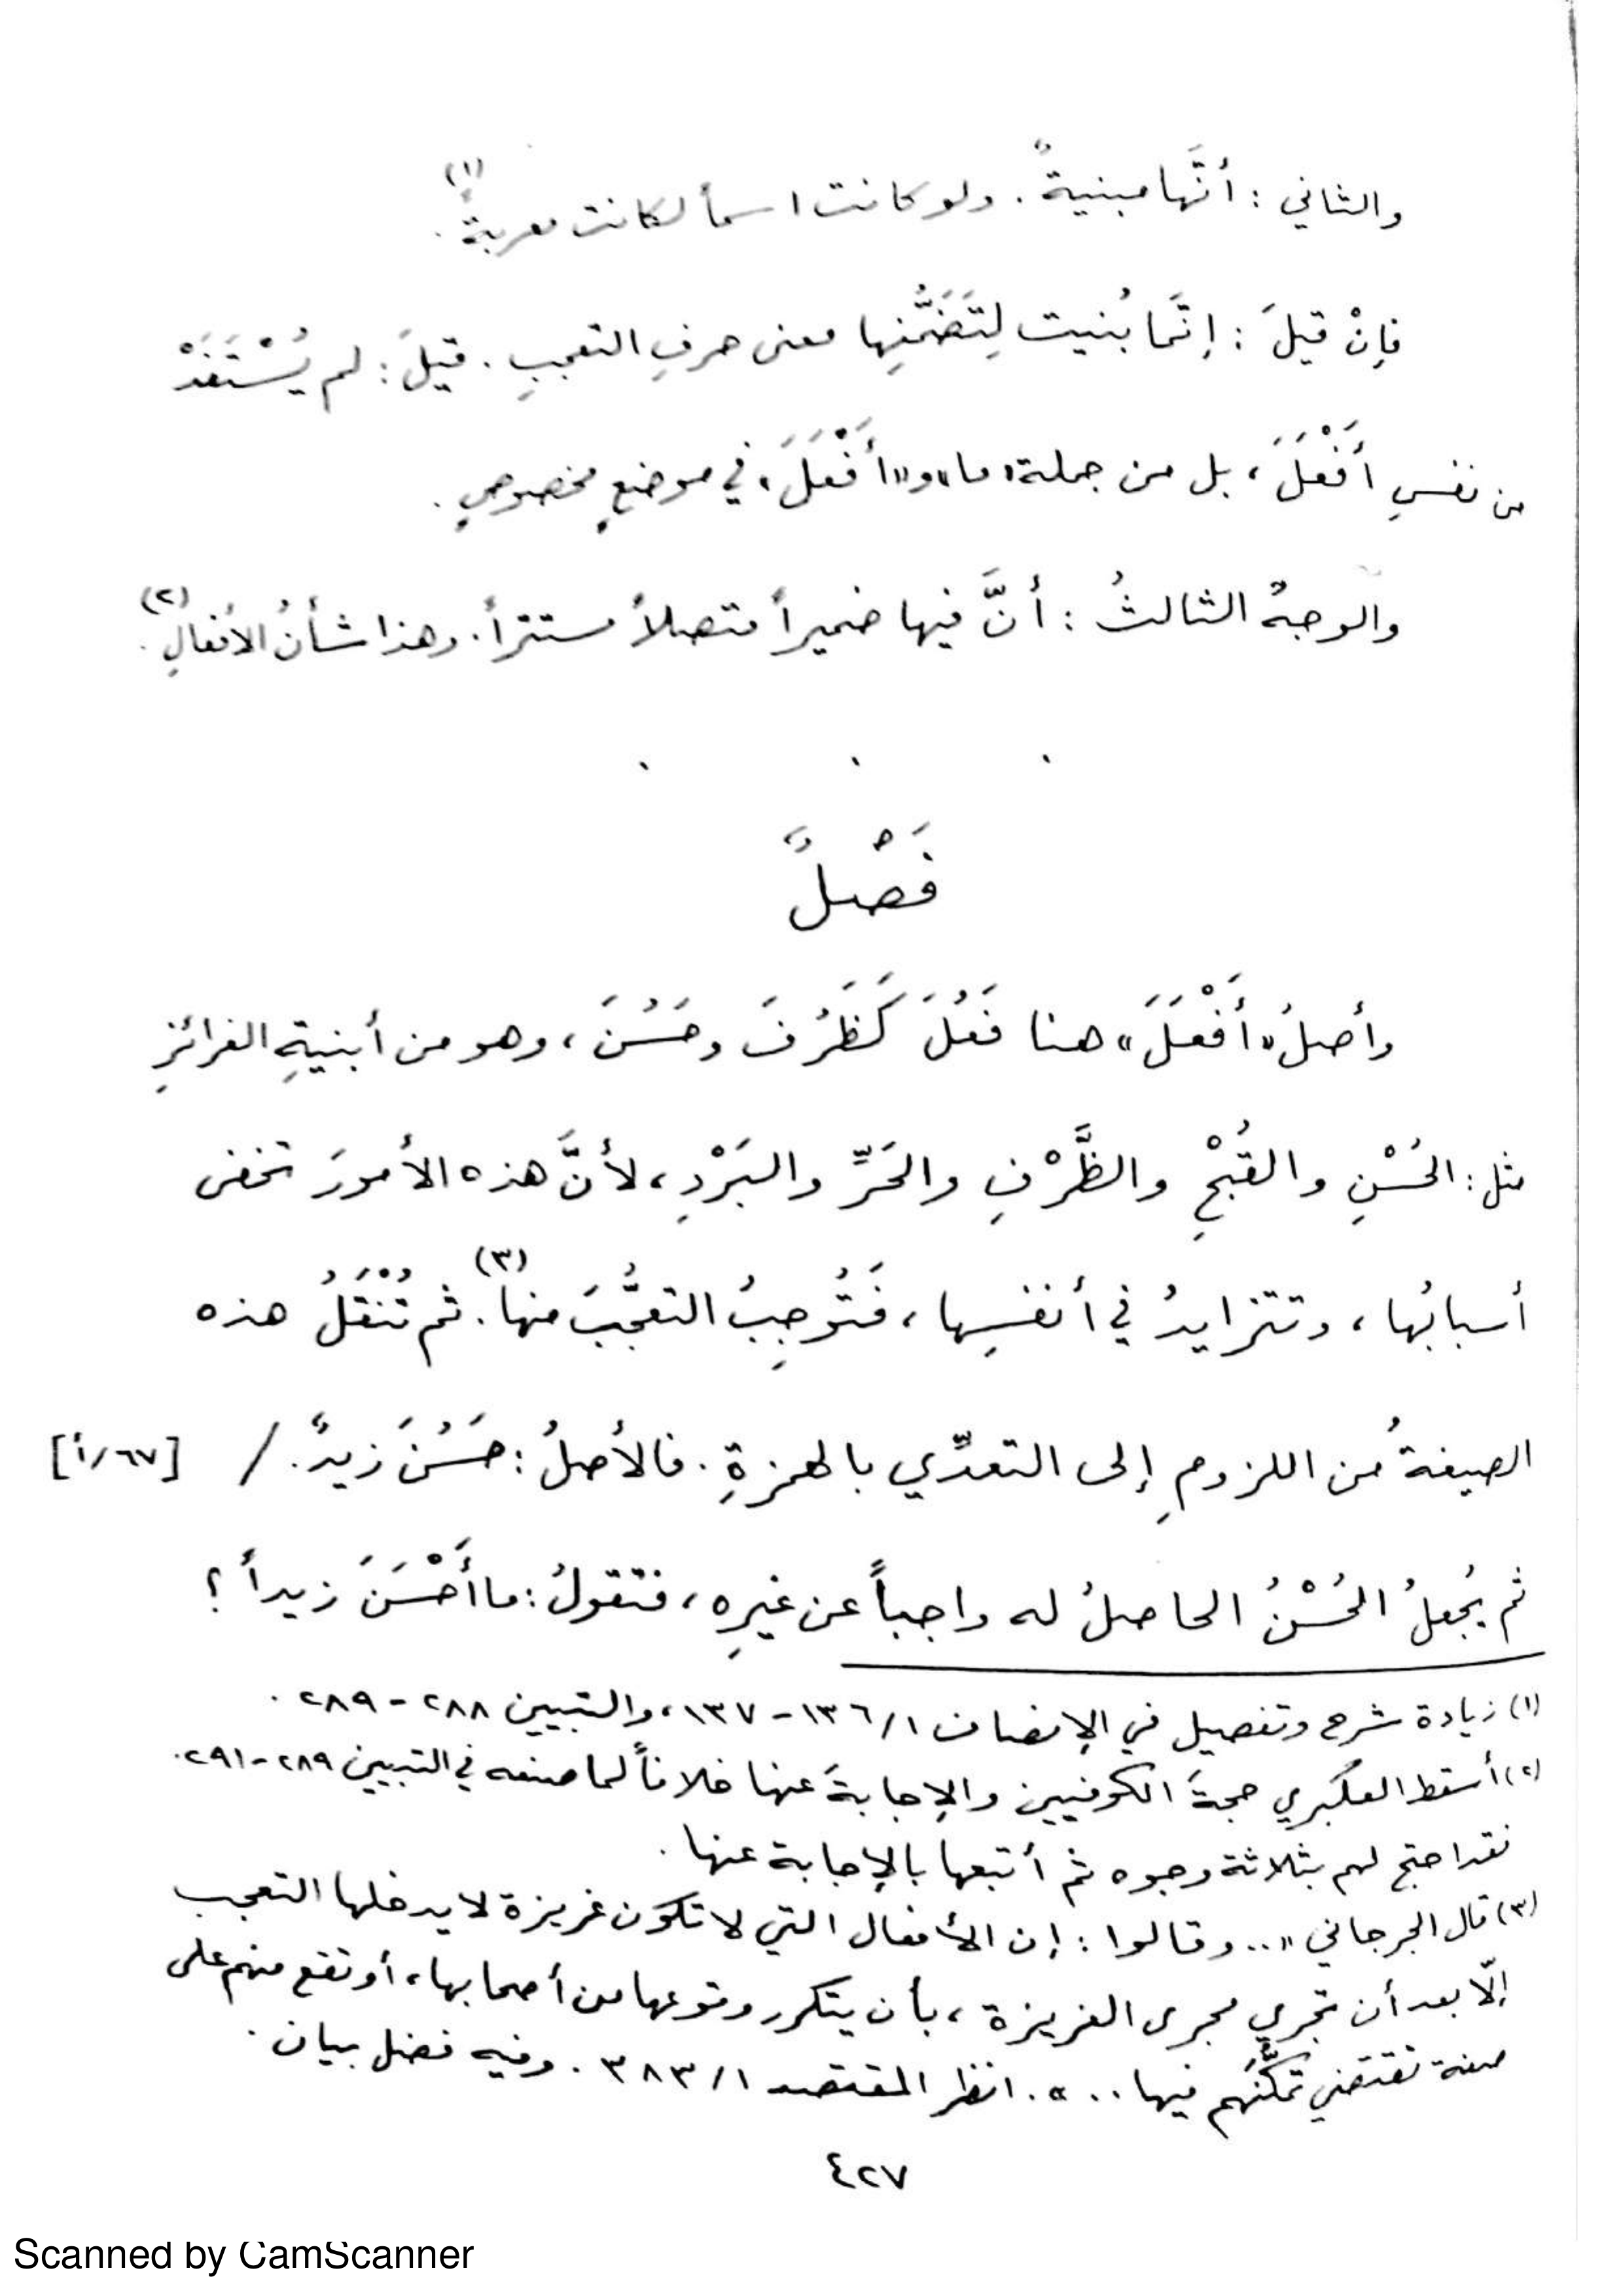 والثاني : أنَّها مبنيةٌ . ولو كانت اسماً لكانت معربةً (١) .
فإنْ قيلَ : إنَّما بُنيت لِتَضَمُّنِها معنى حرفِ التعجبِ . قيلَ : لم يُسْتَفَدْ
من نفسِ أَفْعَلَ ، بل من جملة «ما» و«أَفْعَلَ» في موضعٍ مخصوصٍ .
والوجهُ الثالثُ : أنَّ فيها ضميراً متصلاً مستتراً . وهذا شأنُ الأفعالِ (٢) .
فَصْلٌ
وأصلُ «أَفْعَلَ» هنا فَعُلَ كَظَرُفَ وحَسُنَ ، وهو من أبنيةِ الغرائزِ
مثل : الحُسْنِ والقُبْحِ والظَّرْفِ والحَرِّ والبَرْدِ ، لأنَّ هذه الأمورَ تخفى
أسبابُها ، وتتزايدُ في أنفسِها ، فَتُوجِبُ التعجُّبَ منها (٣) . ثم تُنْقَلُ هذه
الصيغةُ من اللزومِ إلى التعدِّي بالهمزةِ . فالأصلُ : حَسُنَ زيدٌ . / [٦٧/أ]
ثم يُجعلُ الحُسْنُ الحاصلُ له واجباً عن غيرِه ، فتقولُ : ما أَحْسَنَ زيداً ؟
(١) زيادة شرح وتفصيل في الإنصاف ١/١٣٦ - ١٣٧ ، والتبيين ٢٨٨ - ٢٨٩ .
(٢) أسقط العكبري حجةَ الكوفيين والإجابةَ عنها خلافاً لما صنعه في التبيين ٢٨٩ - ٢٩١ .
فقد احتج لهم بثلاثة وجوه ثم أتبعها بالإجابة عنها .
(٣) قال الجرجاني «.. وقالوا : إن الأفعال التي لا تكون غريزة لا يدخلها التعجب
إلّا بعد أن تجري مجرى الغريزة ، بأن يتكرر وقوعها من أصحابها ، أو تقع منهم على
صفة تقتضي تمكُّنَهم فيها .. » . انظر المقتصد ١/٣٨٣ . وفيه فضل بيان .
٤٢٧
Scanned by CamScanner